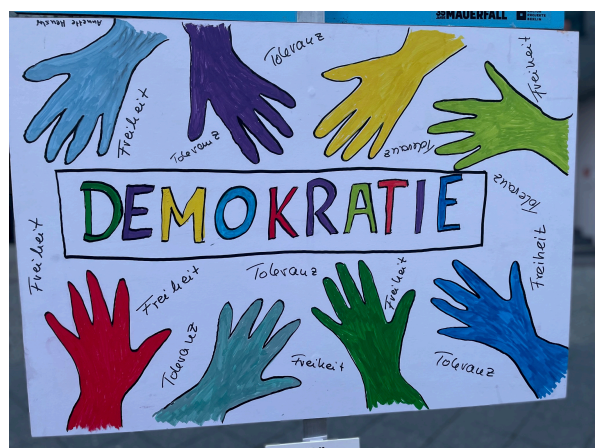 MAUERFALL
Annette
Tolevanz
Freiheit
Freiheit
Tolevanz
Tolevanz
DEMOKRATIE
Tolevanz
Freiheit
Freiheit
Tolevanz
Freiheit
Freiheit
Tolevanz
Freiheit
Tolevanz